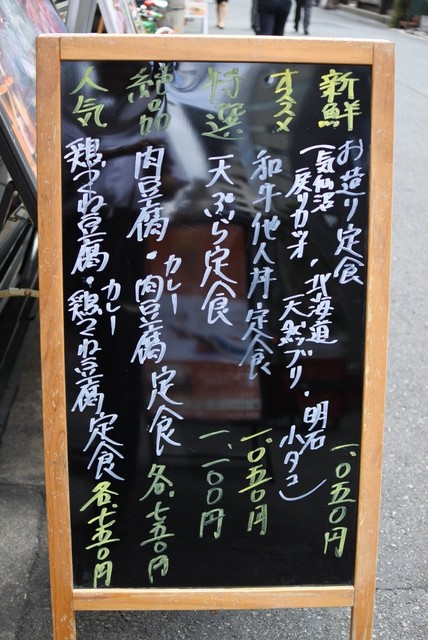 新鮮 お造り定食
(気仙沼戻りカツオ・北海道天然ブリ・明石小ダコ) 一、〇五〇円
オススメ 和牛他人丼定食 一、〇五〇円
特選 天ぷら定食 一、一〇〇円
絶品 肉豆腐・カレー肉豆腐定食 各、七五〇円
人気 鶏つくね豆腐・カレー鶏つくね豆腐定食 各、七五〇円